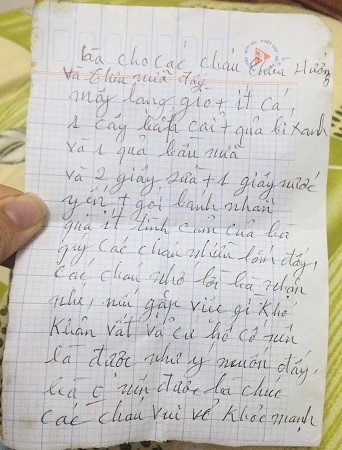 bà cho các cháu chấu Hương
và thịa nưa đấy
mấy lạng giò + ít cá
1 cây bắp cải + quả bí xanh
và 1 quả bầu nữa
và 2 giây sữa + 1 giây nước
yến + gói bánh nhãn
quà ít tình cảm của bà
quý các cháu nhiều lắm đấy,
các cháu nhớ lời bà nhận
nhé, nếu gặp việc gì khó
khăn vất vả cứ hô cố nên
là được như ý muốn đấy,
bà nên được bà chúc
các cháu vui vẻ khỏe mạnh